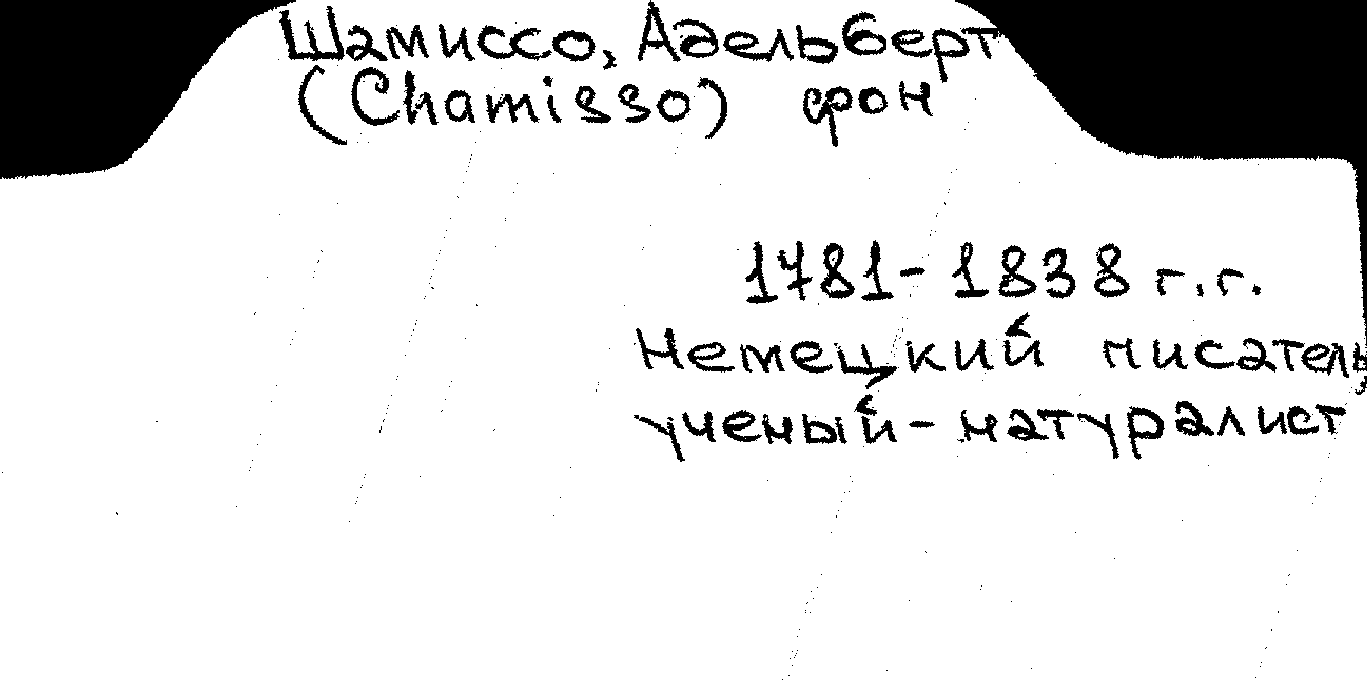 Шамиссо, Адельберт
(Chamisso) фон
1781-1838 г.г.
Немецкий писатель,
ученый-натуралист